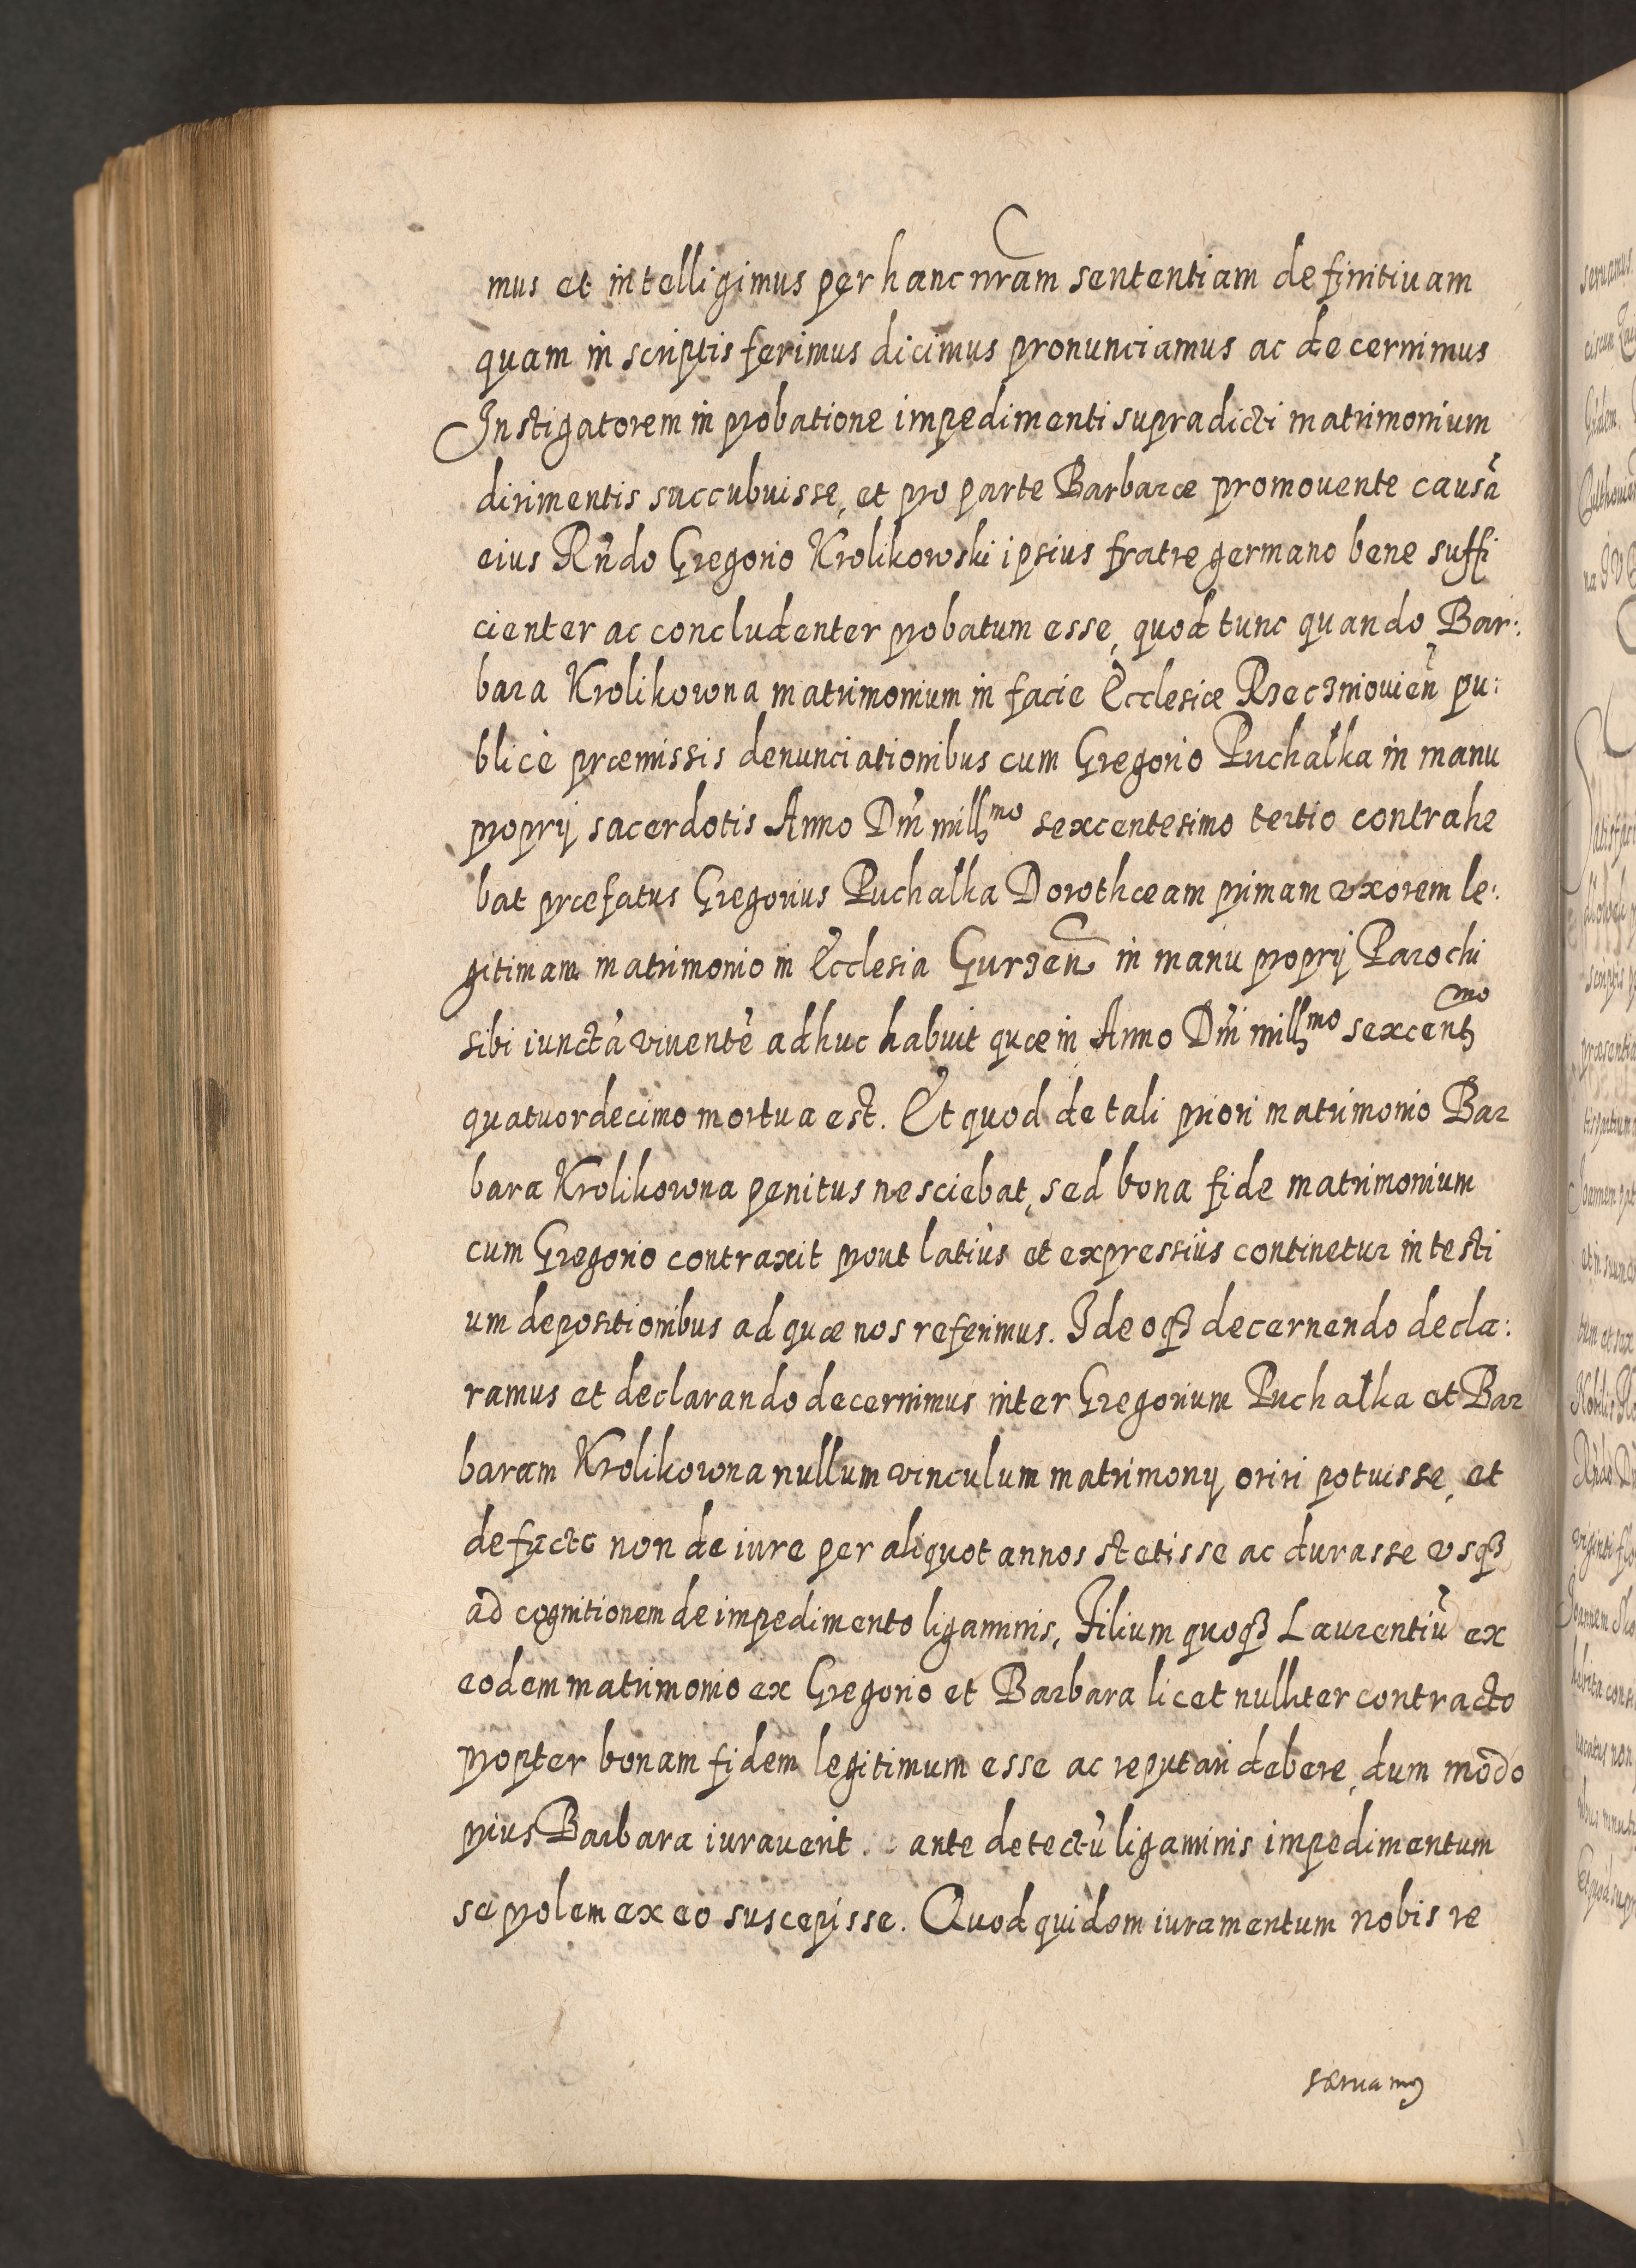 mus et intelligimus per hanc nr̄am sententiam definitiuam
quam in scriptis ferimus dicimus pronunciamus ac decernimus
Instigatorem in probatione impedimenti supradicti matrimonium
dirimentis succubuisse, et pro parte Barbaræ promouente causā
eius Rn̄do Gregorio Krolikowski ipsius fratre germano bene suffi
cienter ac concludenter probatum esse, quod tunc quando Bar:
bara Krolikowna matrimonium in facie Ecclesiæ Rzeczniouien̄ pu:
blicè præmissis denunciationibus cum Gregorio Puchałka in manu
proprij sacerdotis Anno Dn̄i mill̄mo sexcentesimo tertio contrahe
bat præfatus Gregorius Puchałka Dorothæam primam vxorem le:
gitimam matrimonio in Ecclesia Gurzen̄ in manu proprij Parochi
sibi iunctā viventē adhuc habuit quæ in Anno Dn̄i mill̄mo sexcentmo
quatuordecimo mortua est. Et quod de tali priori matrimonio Bar
bara Krolikowna penitus nesciebat, sed bona fide matrimonium
cum Gregorio contraxit prout latiùs et expressiùs continetur in testi
um depositionibus ad quæ nos referimus. Ideoqȝ decernendo decla:
ramus et declarando decernimus inter Gregorium Puchałka et Bar
baram Krolikowna nullum vinculum matrimonij oriri potuisse, et
de facto non de iure per aliquot annos stetisse ac durasse vsqȝ
ad cognitionem de impedimento ligaminis, Filium quoqȝ Laurentiū ex
eodem matrimonio ex Gregorio et Barbara licet nulliter contracto
propter bonam fidem legitimum esse ac reputari debere, dum modo
prius Barbara iurauerit ante detectū ligaminis impedimentum
se prolem ex eo suscepisse. Quod quidem iuramentum nobis re
seruamus